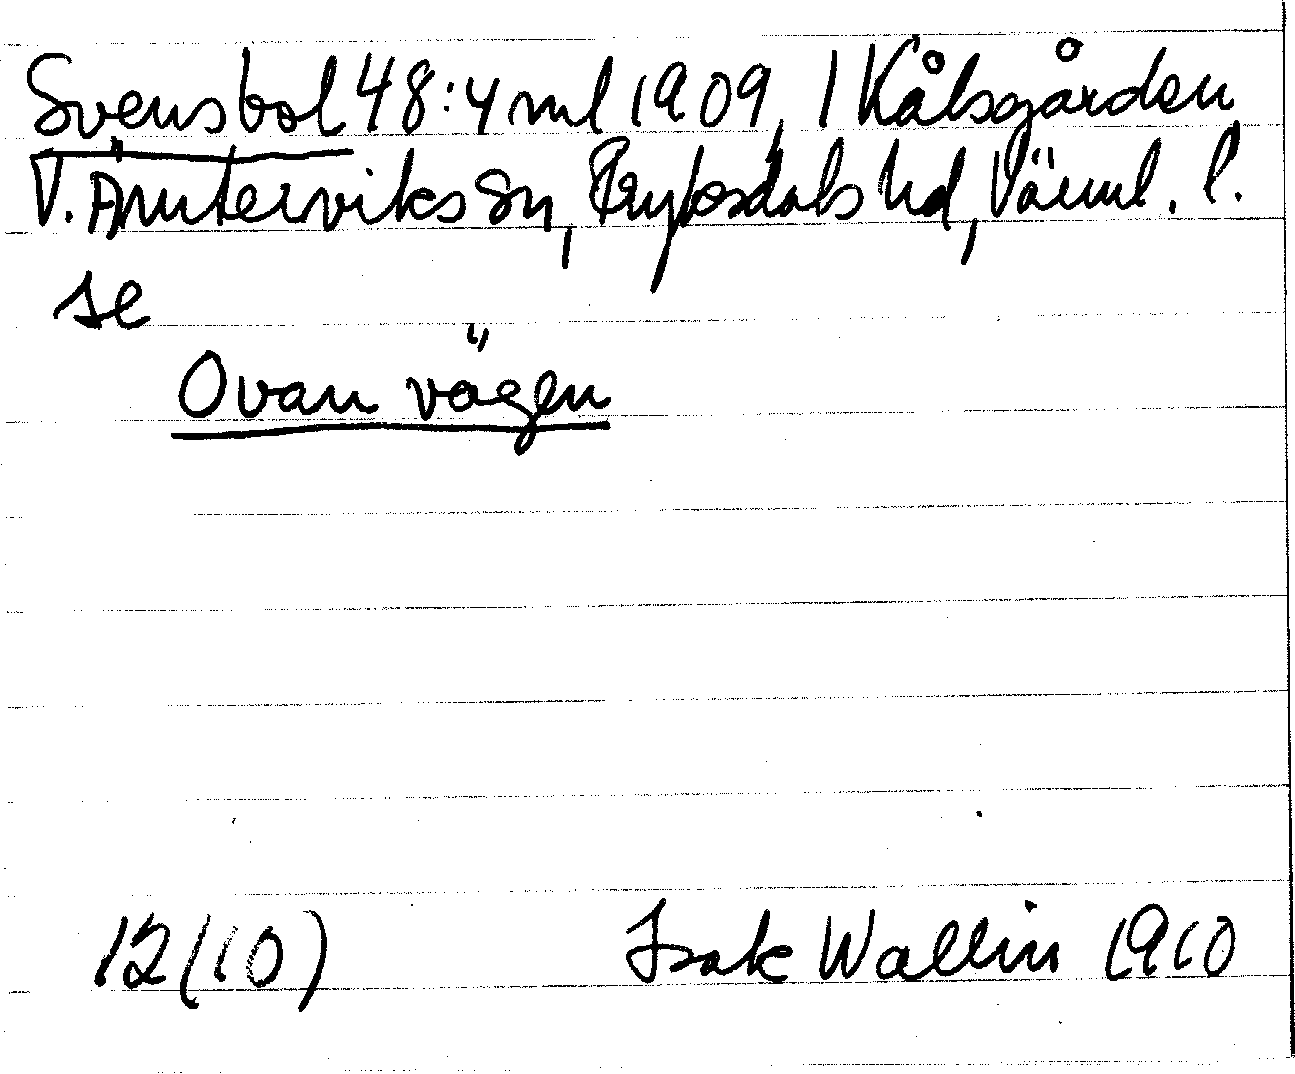 Svensbol 48:4 ml 1909, 1 Kålsgården
V. Ämterviks sn, Fryksdals hd, Värml. l.
se
Ovan vägen
12(10) Isak Wallin 1910